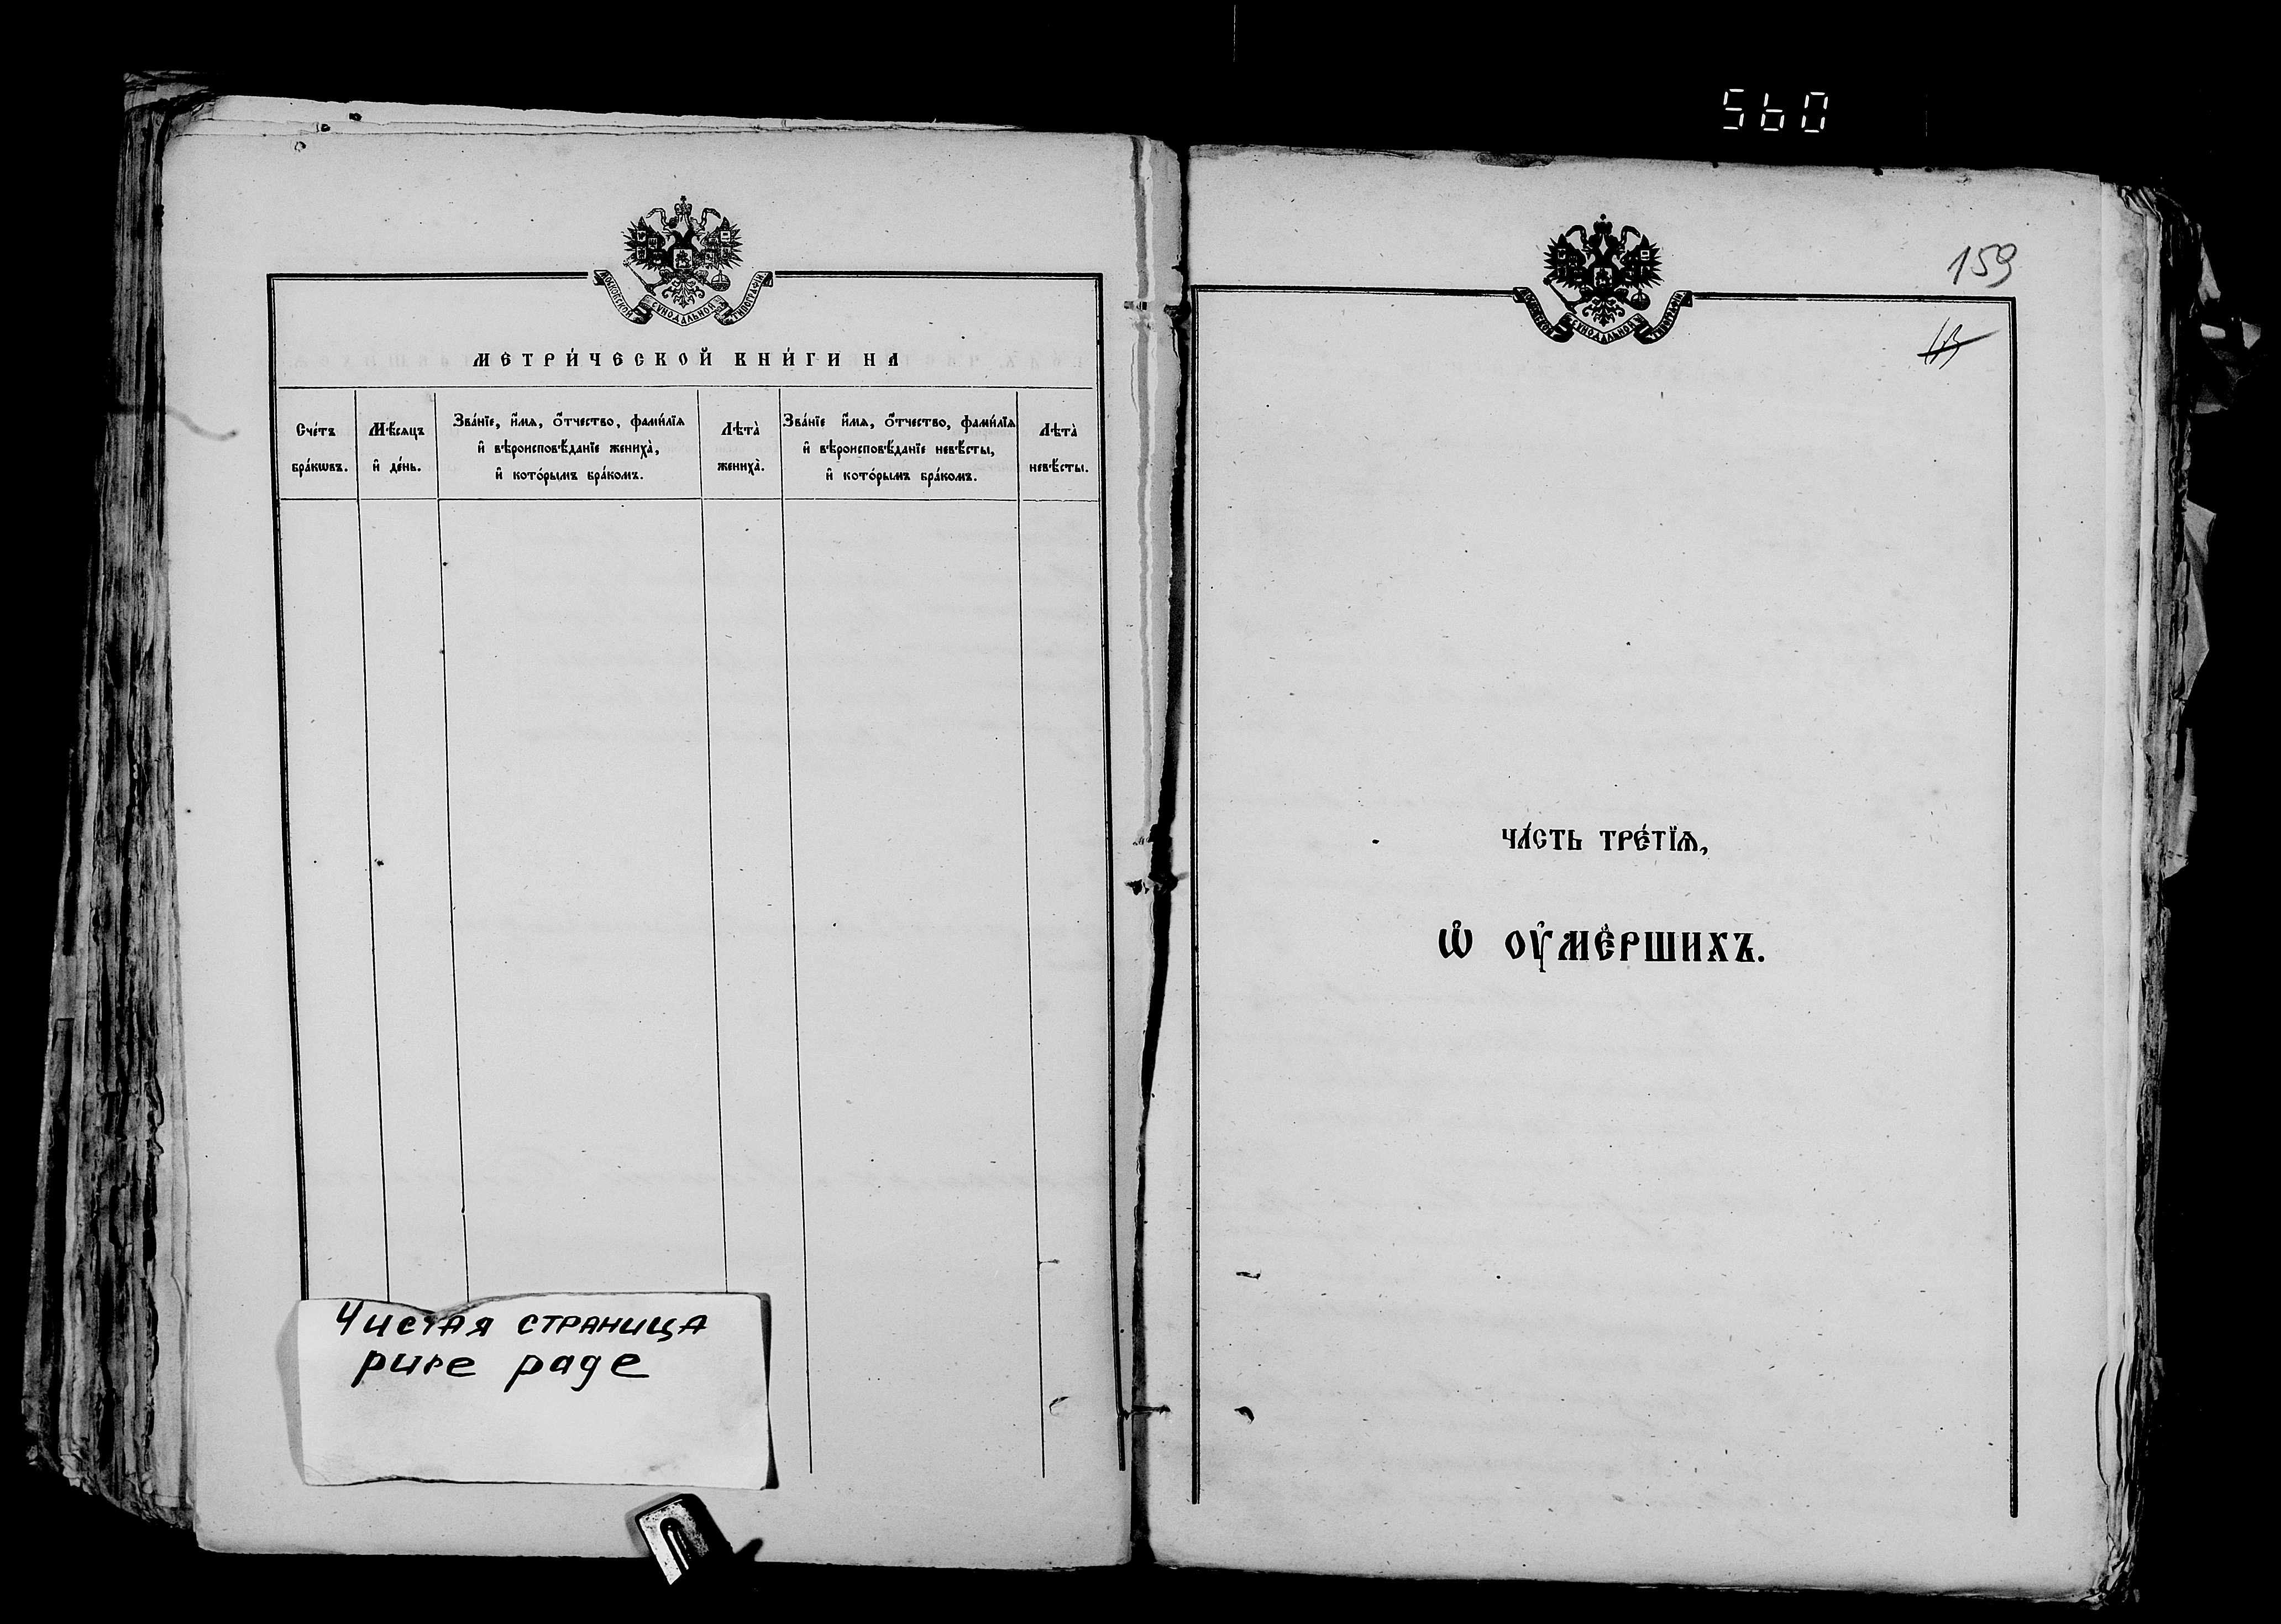 560
МОСКОВСКОЙ СѴНОДАЛЬНОЙ ТИПОГРАФІИ
МЕТРИ́ЧЕСКОЙ КНИ́ГИ НА
Сче́тъ бра́кѡвъ.
Мѣ́сяцъ и҆ де́нь.
Зва́нїе, и҆́мѧ, ѻ҆́тчество, фами́лїѧ
и҆ вѣроисповѣ́данїе жениха̀,
и҆ кото́рымъ бра́комъ.
Лѣта̀ жениха̀.
Зва́нїе и҆́мѧ, ѻ҆́тчество, фами́лїѧ
и҆ вѣроисповѣ́данїе невѣ́сты,
и҆ кото́рымъ бра́комъ.
Лѣта̀ невѣ́сты.
Чистая страница
pure page
МОСКОВСКОЙ СѴНОДАЛЬНОЙ ТИПОГРАФІИ
159
ЧА́СТЬ ТРЕ́ТЇѦ,
Ѡ҆ ОУ҆МЕ́РШИХЪ.